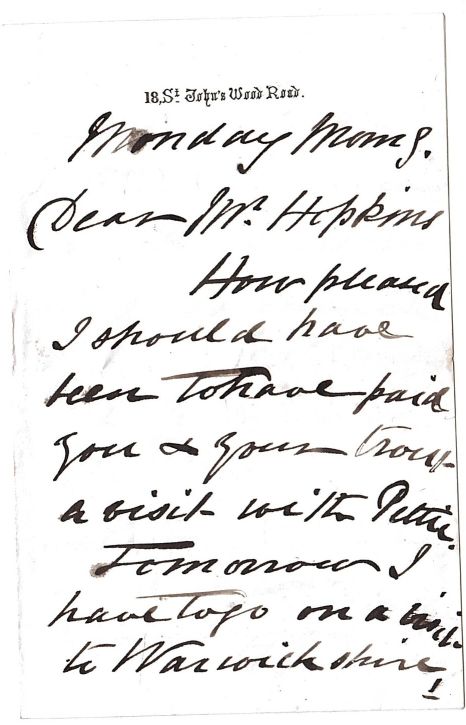 18, St John's Wood Road.
Monday Morng.
Dear Mr Hipkins
How pleased
I should have
been to have paid
you & your trout
a visit with Pettie.
Tomorrow I
have to go on a visit
to Warwickshire
1